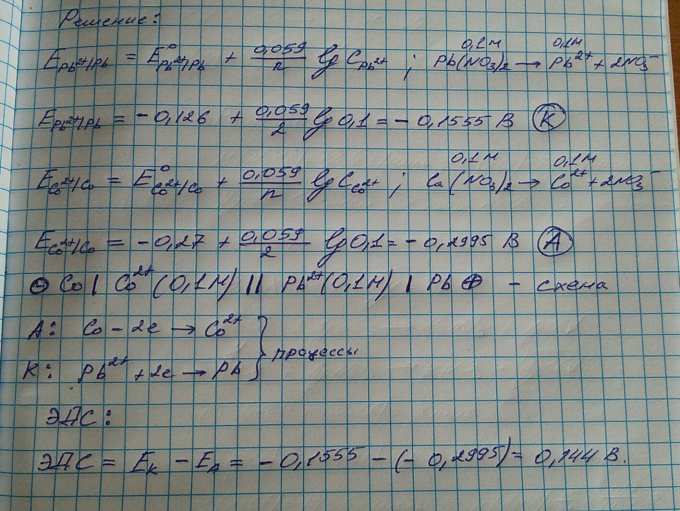 Решение:
E Pb²⁺/Pb = E° Pb²⁺/Pb + 0,059/n lg C Pb²⁺ ; 0,1М Pb(NO₃)₂ → 0,1М Pb²⁺ + 2NO₃⁻
E Pb²⁺/Pb = -0,126 + 0,059/2 lg 0,1 = -0,1555 В (К)
E Co²⁺/Co = E° Co²⁺/Co + 0,059/n lg C Co²⁺ ; 0,1М Co(NO₃)₂ → 0,1М Co²⁺ + 2NO₃⁻
E Co²⁺/Co = -0,27 + 0,059/2 lg 0,1 = -0,2995 В (А)
⊖ Co | Co²⁺ (0,1М) || Pb²⁺ (0,1М) | Pb ⊕ - схема
А: Co - 2e → Co²⁺
К: Pb²⁺ + 2e → Pb } процессы
ЭДС:
ЭДС = Eк - Eа = -0,1555 - (-0,2995) = 0,144 В.